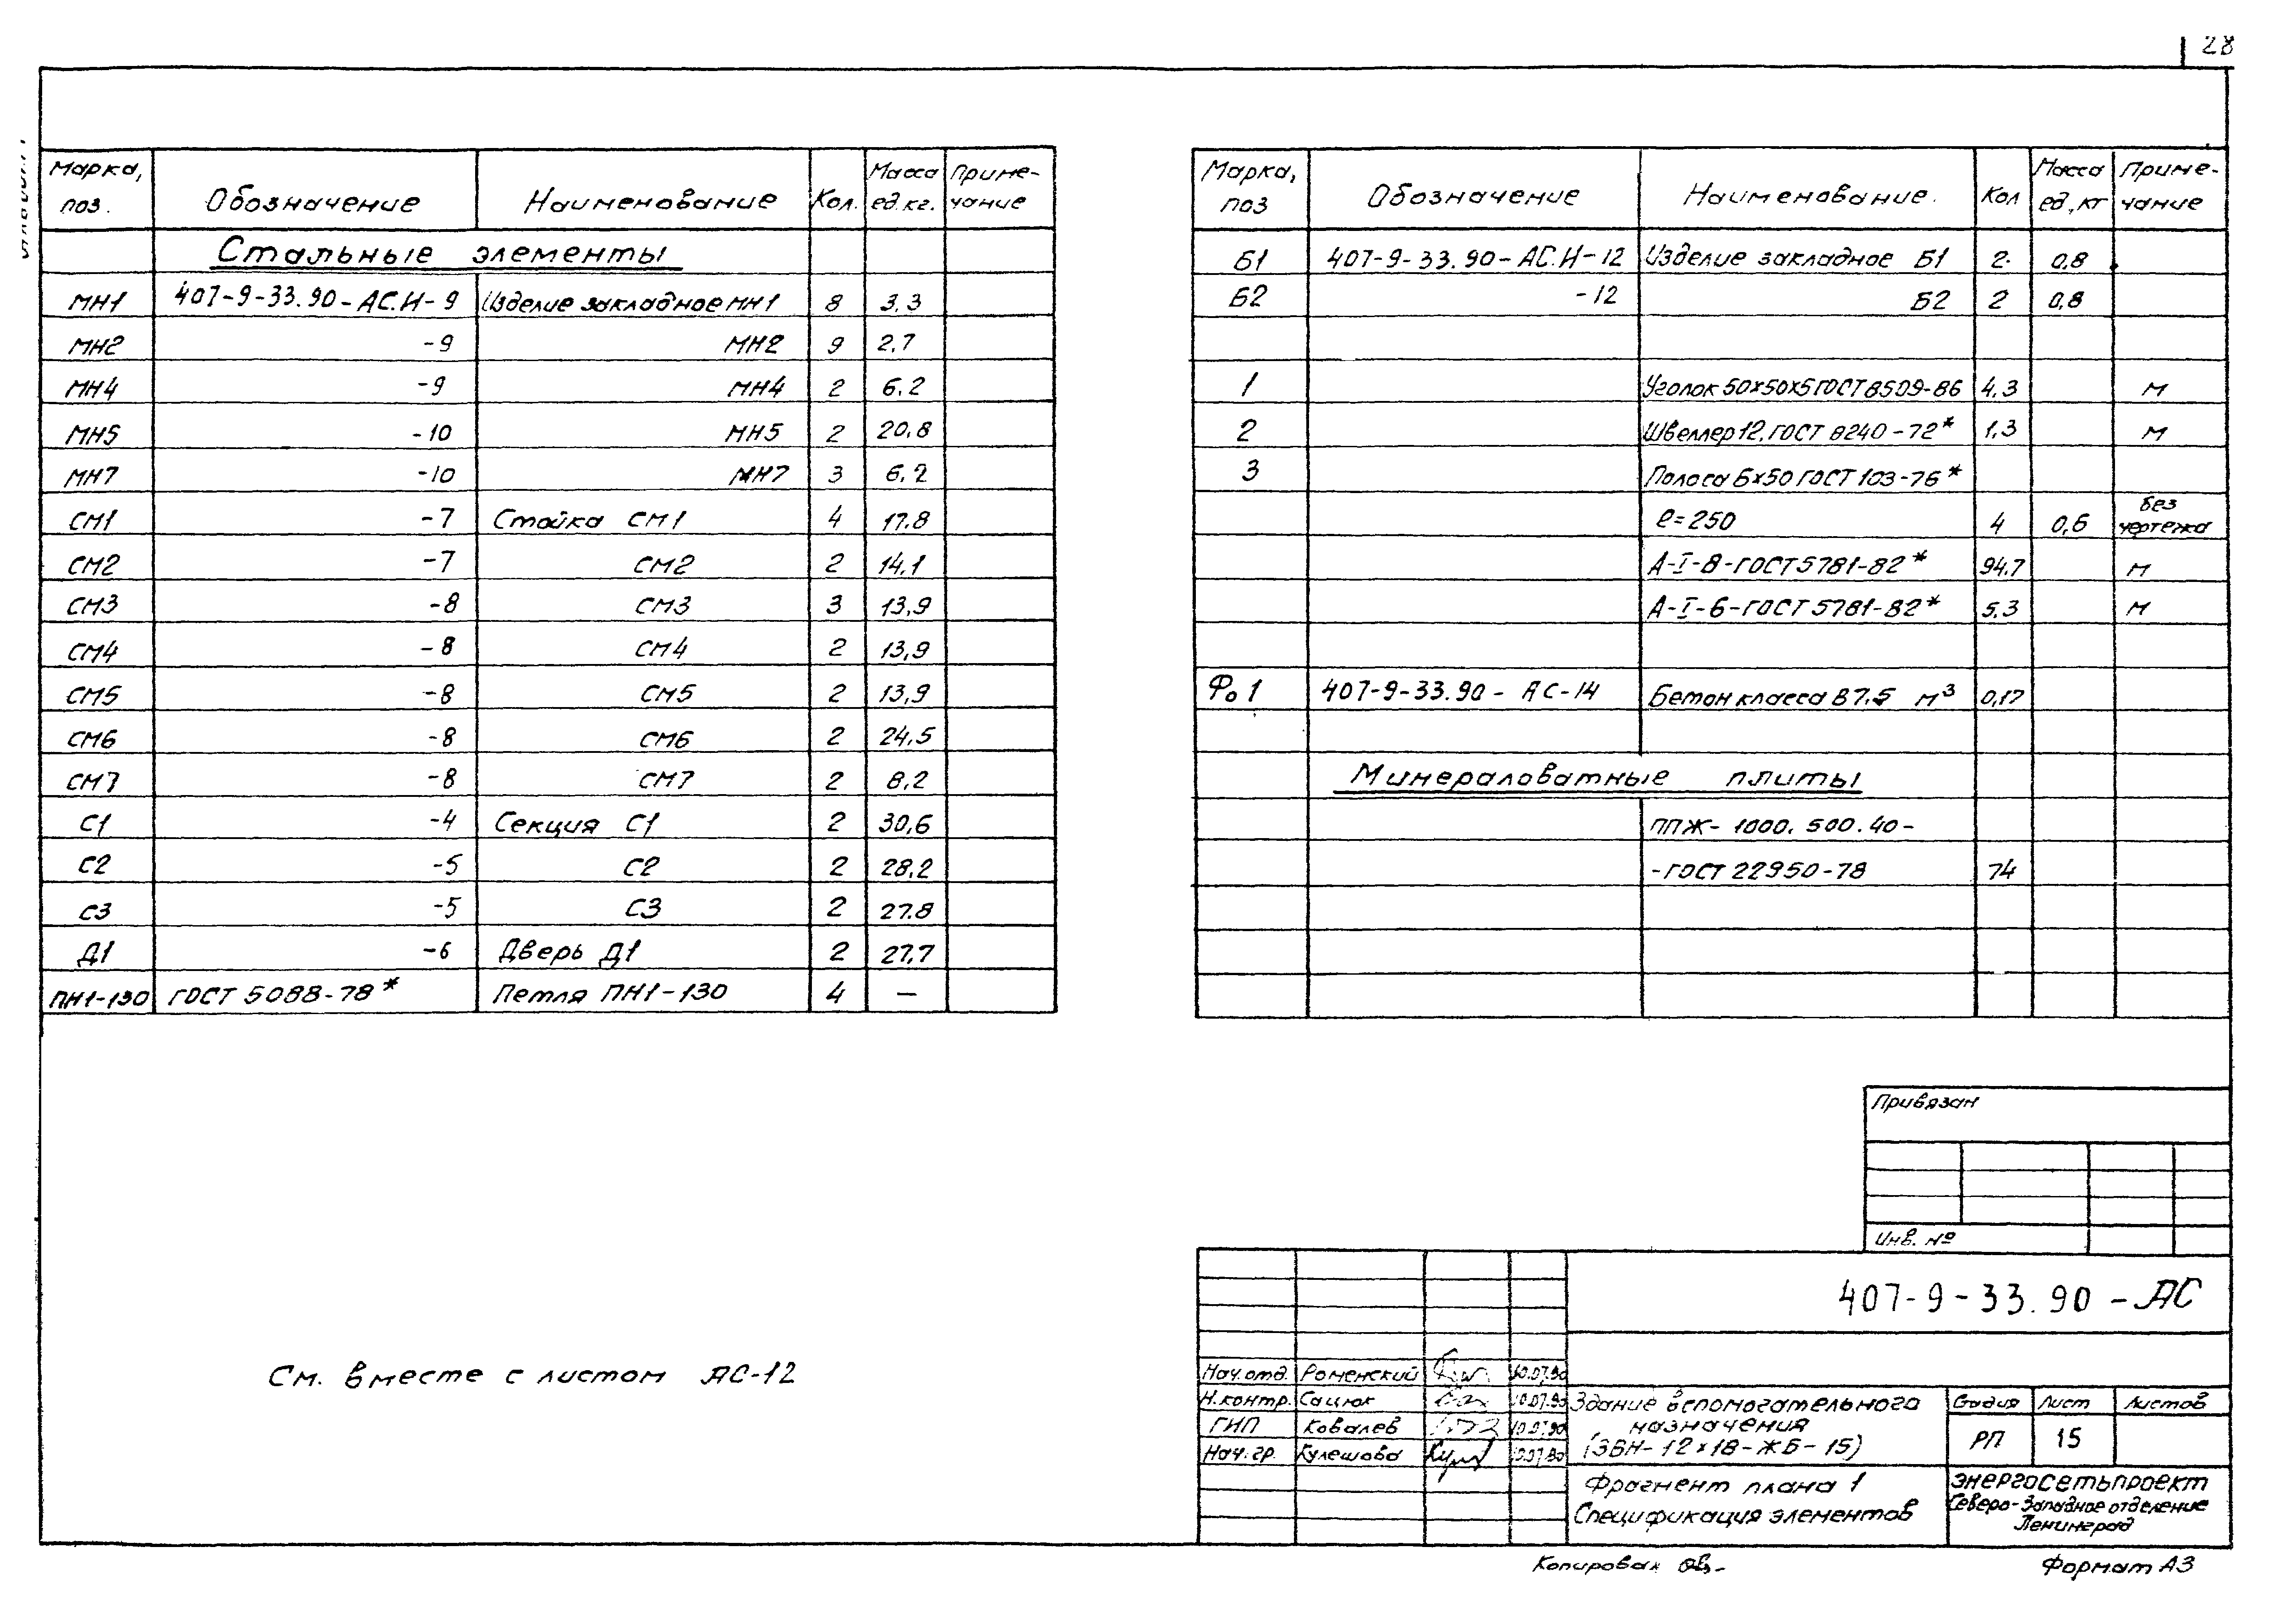 28
Марка, поз. Обозначение Наименование Кол. Масса ед. кг. Приме-чание
Стальные элементы
МН1 407-9-33.90-АС.И-9 Изделие закладное МН1 8 3,3
МН2 -9 МН2 9 2,7
МН4 -9 МН4 2 6,2
МН5 -10 МН5 2 20,8
МН7 -10 МН7 3 6,2
СМ1 -7 Стойка СМ1 4 17.8
СМ2 -7 СМ2 2 14,1
СМ3 -8 СМ3 3 13,9
СМ4 -8 СМ4 2 13,9
СМ5 -8 СМ5 2 13,9
СМ6 -8 СМ6 2 24,5
СМ7 -8 СМ7 2 8,2
С1 -4 Секция С1 2 30,6
С2 -5 С2 2 28,2
С3 -5 С3 2 27.8
Д1 -6 Дверь Д1 2 27,7
ПН1-130 ГОСТ 5088-78* Петля ПН1-130 4 —
Марка, поз Обозначение Наименование. Кол Масса ед, кг Приме-чание
Б1 407-9-33.90-АС.И-12 Изделие закладное Б1 2. 0,8
Б2 -12 Б2 2 0,8
1 Уголок 50x50x5 ГОСТ 8509-86 4,3 м
2 Швеллер 12. ГОСТ 8240-72* 1,3 м
3 Полоса 6x50 ГОСТ 103-76*
ℓ=250 4 0,6 без чертежа
А-I-8-ГОСТ 5781-82* 94.7 м
А-I-6-ГОСТ 5781-82* 5.3 м
Фо1 407-9-33.90-АС-14 Бетон класса В7,5 м³ 0,17
Минераловатные плиты
ППЖ-1000.500.40-
-ГОСТ 22950-78 74
Привязан
Инв. №
407-9-33.90-АС
См. вместе с листом АС-12
Нач.отд. Роменский 10.07.90
Н.контр. Сацюк 10.07.90
ГИП Ковалев 10.07.90
Нач.гр. Кулешова 10.07.90
Здание вспомогательного
назначения
(ЗВН-12x18-ЖБ-15)
Стадия Лист Листов
РП 15
Фрагмент плана 1
Спецификация элементов
Энергосетьпроект
Северо-Западное отделение
Ленинград
Копировал
Формат А3